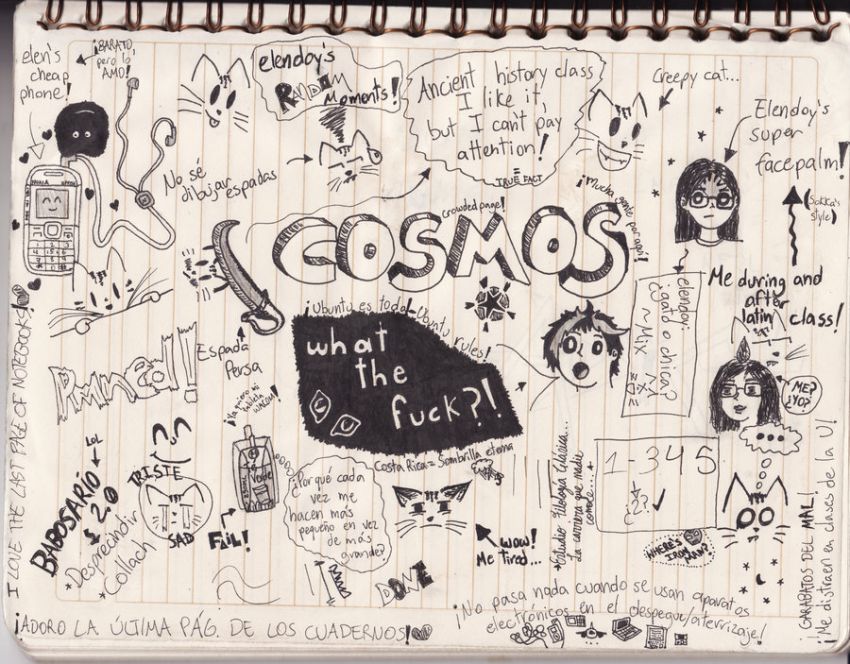 elen's
cheap
phone!
¡BARATO,
pero lo
AMO!
elendoy's
RANDOM
Moments!
Ancient history class
I like it,
but I can't pay
attention!
TRUE FACT
Creepy cat...
Elendoy's
super
facepalm!
(Sokka's
style)
No sé
dibujar espadas
crowded page!
¡Mucha gente por aquí!
COSMOS
Me during and
after
latin
class!
elendoy:
¿gato o chica?
¡Ubuntu es todo!-Ubuntu
rules!
what
the
fuck?!
Espada
Persa
ME?
¿YO?
...
LOL
BABOSARIO
2.0
*Despreandir
*Collach
TRISTE
SAD
FAIL!
¿Por qué cada
vez me
hacen más
pequeño en vez
de más
grande?
Costa Rica = Sombrilla eterna
WOW!
Me tired...
*Estudio Filología Clásica...
La carrera que nadie
conoce...
1-345
¿2?
WHERE'S
IRON
MAN?
DONE
I LOVE THE LAST PAGE OF NOTEBOOKS!
¡ADORO LA ÚLTIMA PÁG. DE LOS CUADERNOS!
¡No pasa nada cuando se usan aparatos
electrónicos en el despegue/aterrizaje!
GARABATOS DEL MAL!
¡Me distraen en clases de la U!